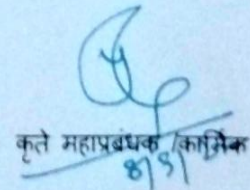 कृते महाप्रबंधक /कार्मिक